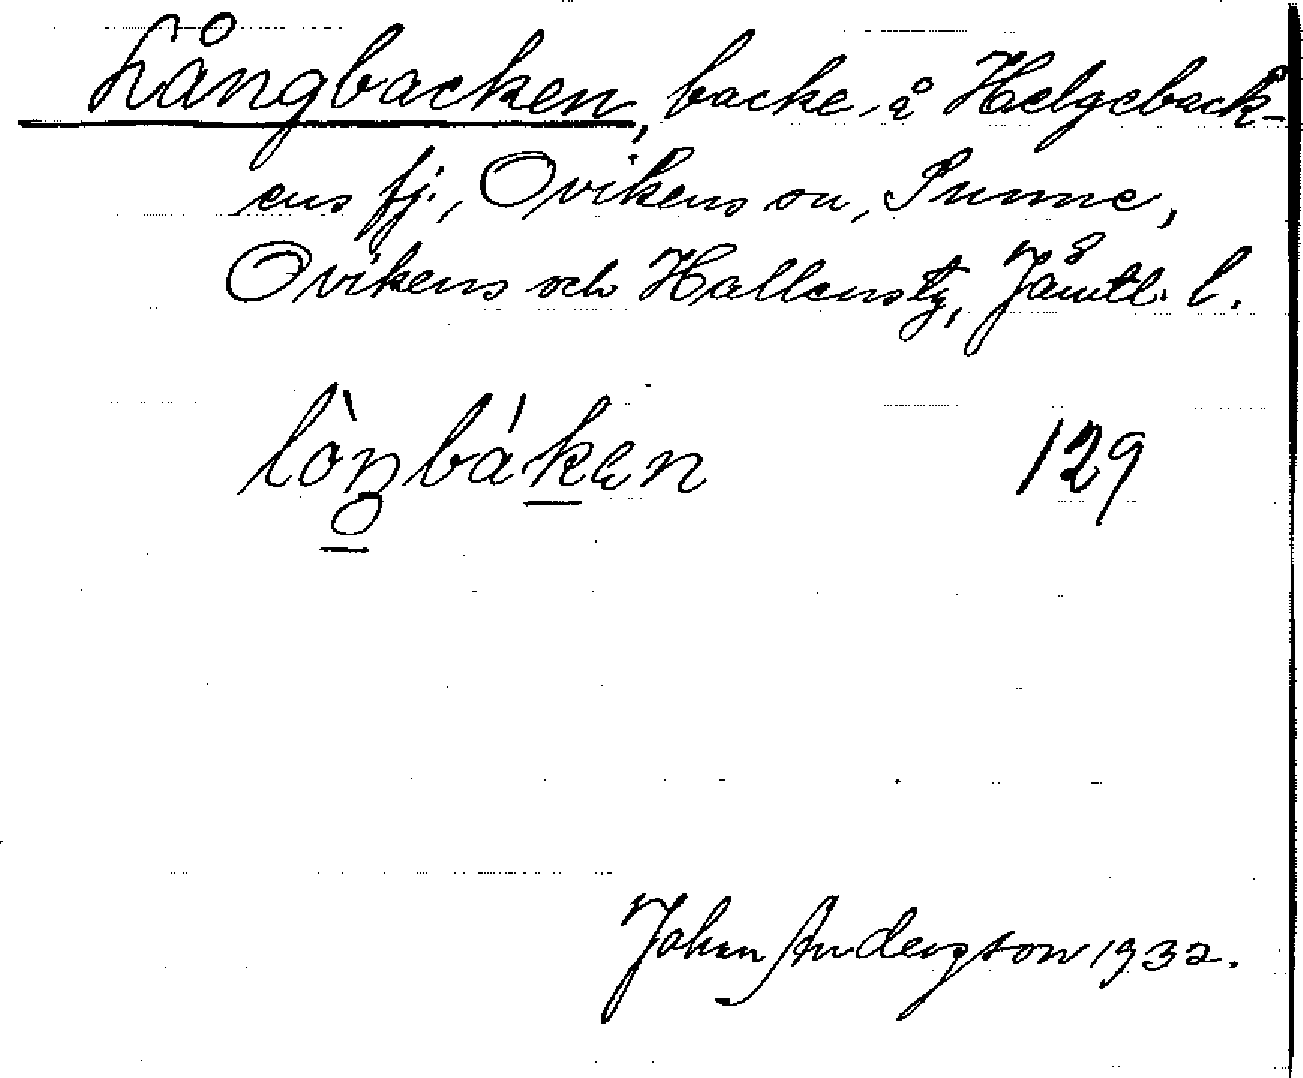 Långbacken, backe å Helgeback-
ens fj., Ovikens sn, Sunne,
Ovikens och Hallens tg, Jämtl. l.
lòŋbáken 129
Johan Anderson 1932.